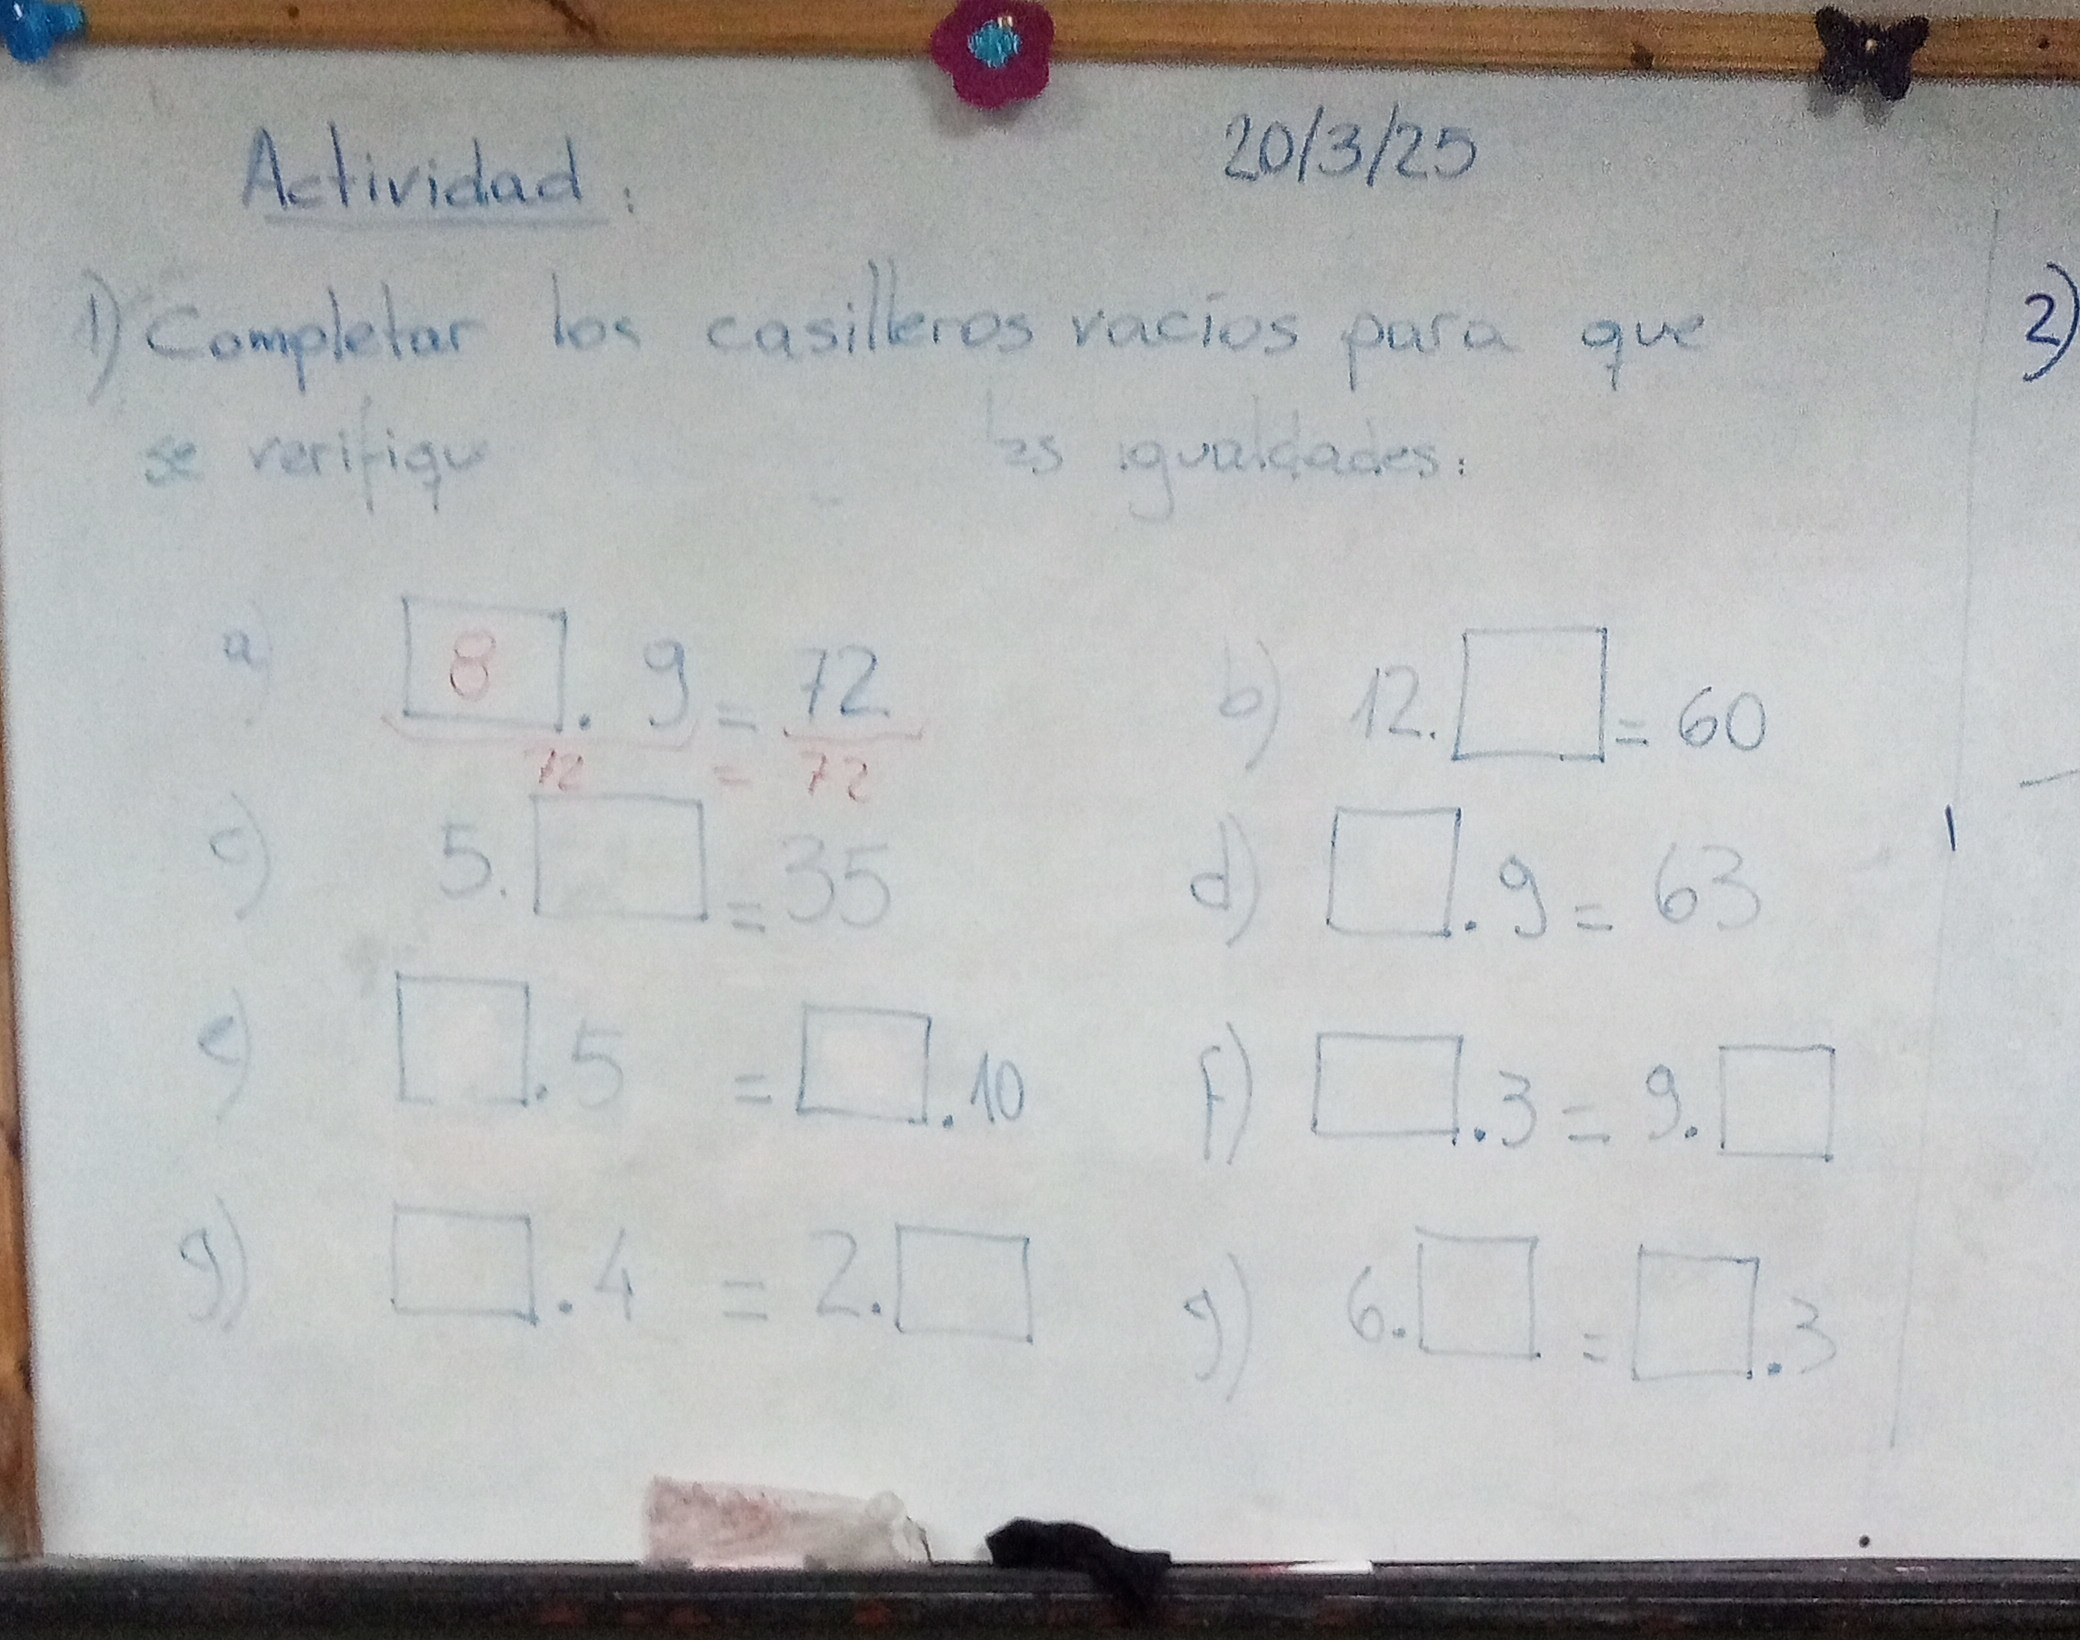 Actividad: 20/3/25
1) Completar los casilleros vacíos para que
se verifiqu las igualdades:
a) 8 . 9 = 72
72 = 72
b) 12. = 60
c) 5. = 35
d) . 9 = 63
e) . 5 = . 10
f) . 3 = 9.
g) . 4 = 2.
g) 6. = . 3
2)